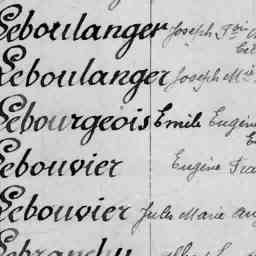 Leboulanger Joseph Fois
Leboulanger Joseph Mie
Lebourgeois Emile Eugène
Lebouvier Eugène
Lebouvier Jules Marie